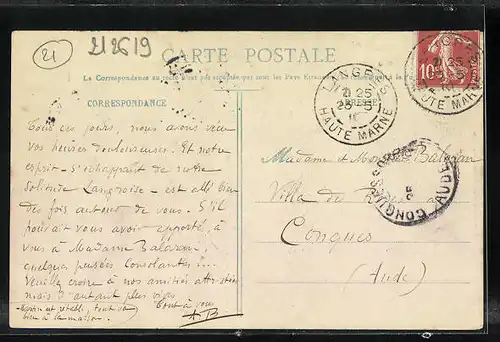 21
212619
CARTE POSTALE
La Correspondance au recto n'est pas acceptée par tous les Pays Étrangers
CORRESPONDANCE
ADRESSE
LANGRES
21 25
25 - 5
HAUTE MARNE
10
LANGRES
HAUTE MARNE
CONQUES
AUDE
Tous ces jours, nous avons vécu
vos heures douloureuses. Et notre
esprit - s'échappant de notre
solitude Langroise - est allé bien
des fois autour de vous. S'il
pouvait vous avoir apporté, à
vous à Madame Balaran,
quelques pensées consolantes...
Veuillez croire à nos amitiés attristées
mais d'autant plus vives
Tout à vous
bien à la maison.
Madame et Monsieur Balaran
Villa de
Conques
(Aude)